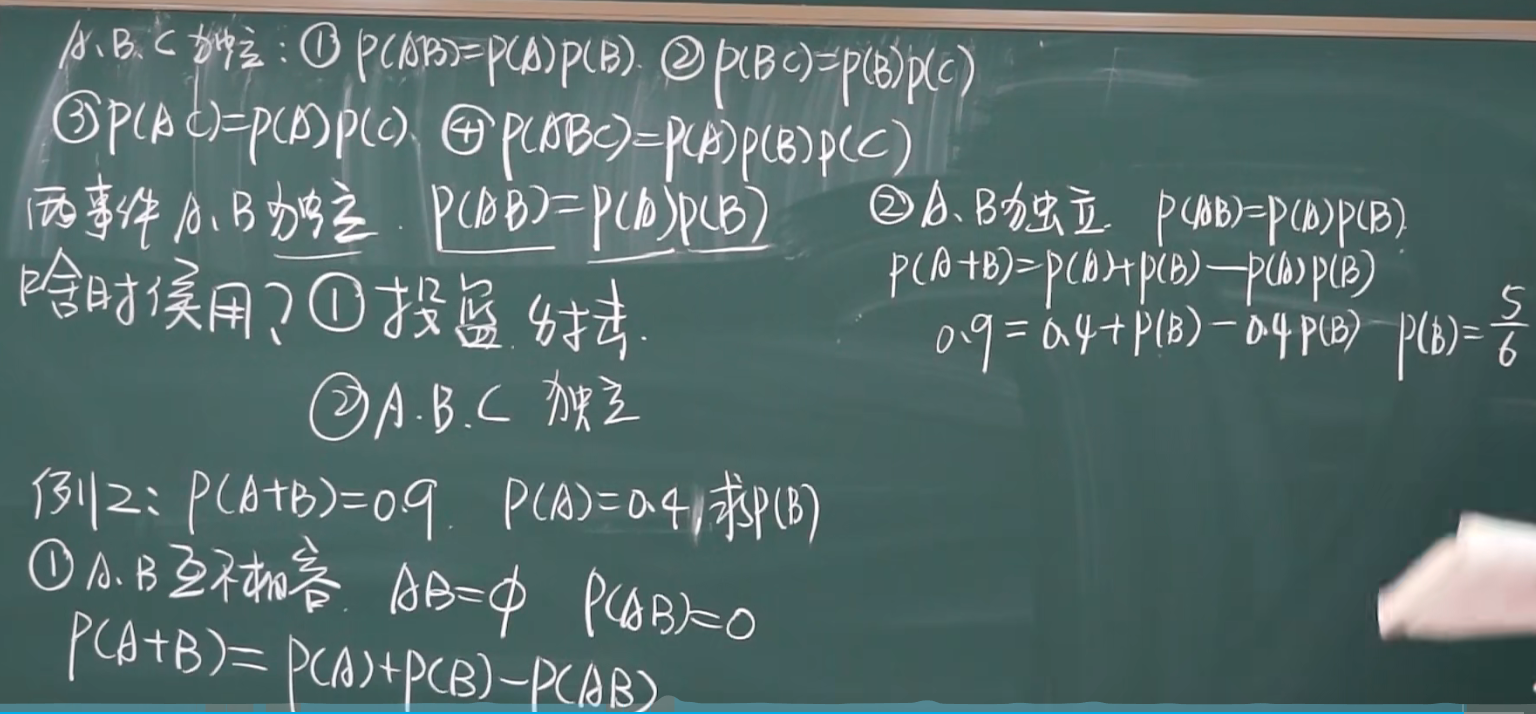 A、B、C独立:① P(AB)=P(A)P(B). ② P(BC)=P(B)P(C)
③ P(AC)=P(A)P(C). ④ P(ABC)=P(A)P(B)P(C)
两事件A、B独立. P(AB)=P(A)P(B)
啥时候用?① 投篮 射击.
② A.B.C 独立
例2: P(A+B)=0.9. P(A)=0.4,求P(B)
① A.B互不相容. AB=φ P(AB)=0
P(A+B)=P(A)+P(B)-P(AB)
② A、B为独立. P(AB)=P(A)P(B).
P(A+B)=P(A)+P(B)-P(A)P(B)
0.9=0.4+P(B)-0.4P(B) P(B)=5/6